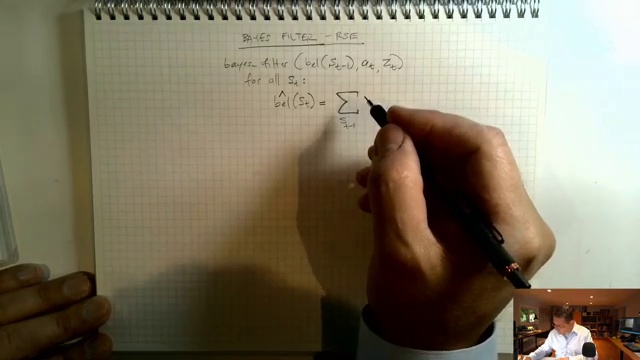 BAYES FILTER - RSE
bayes filter (bel(s_{t-1}), a_t, z_t)
for all s_t:
b̂el(s_t) = Σ_{s_{t-1}}